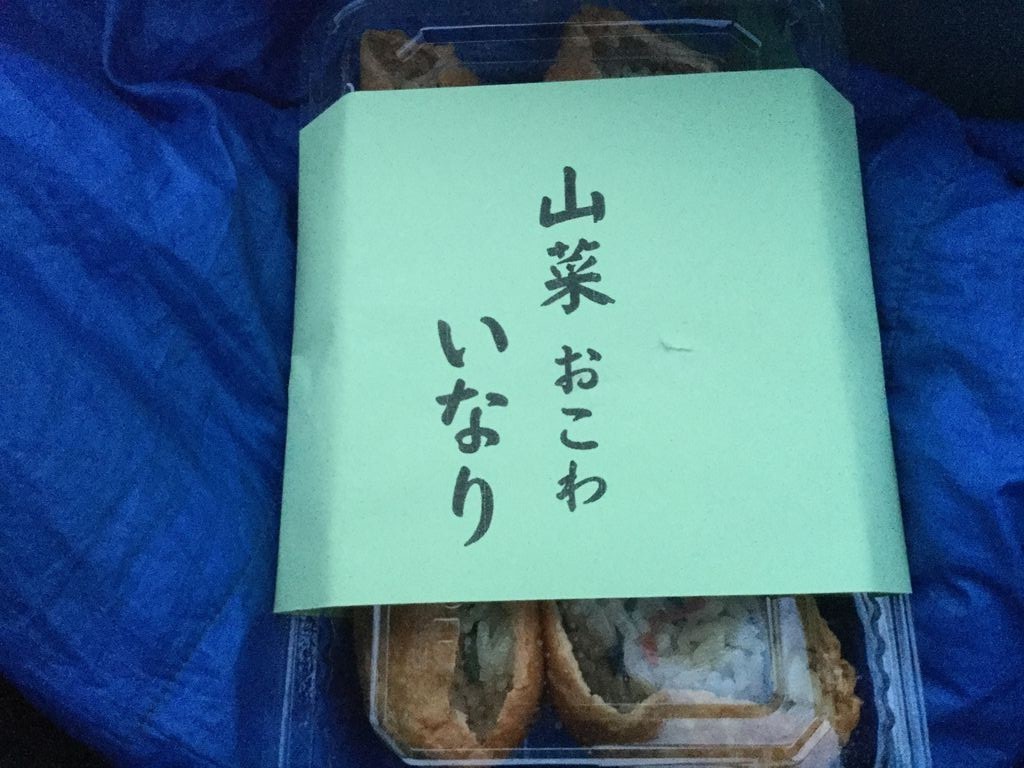 山菜おこわ
いなり